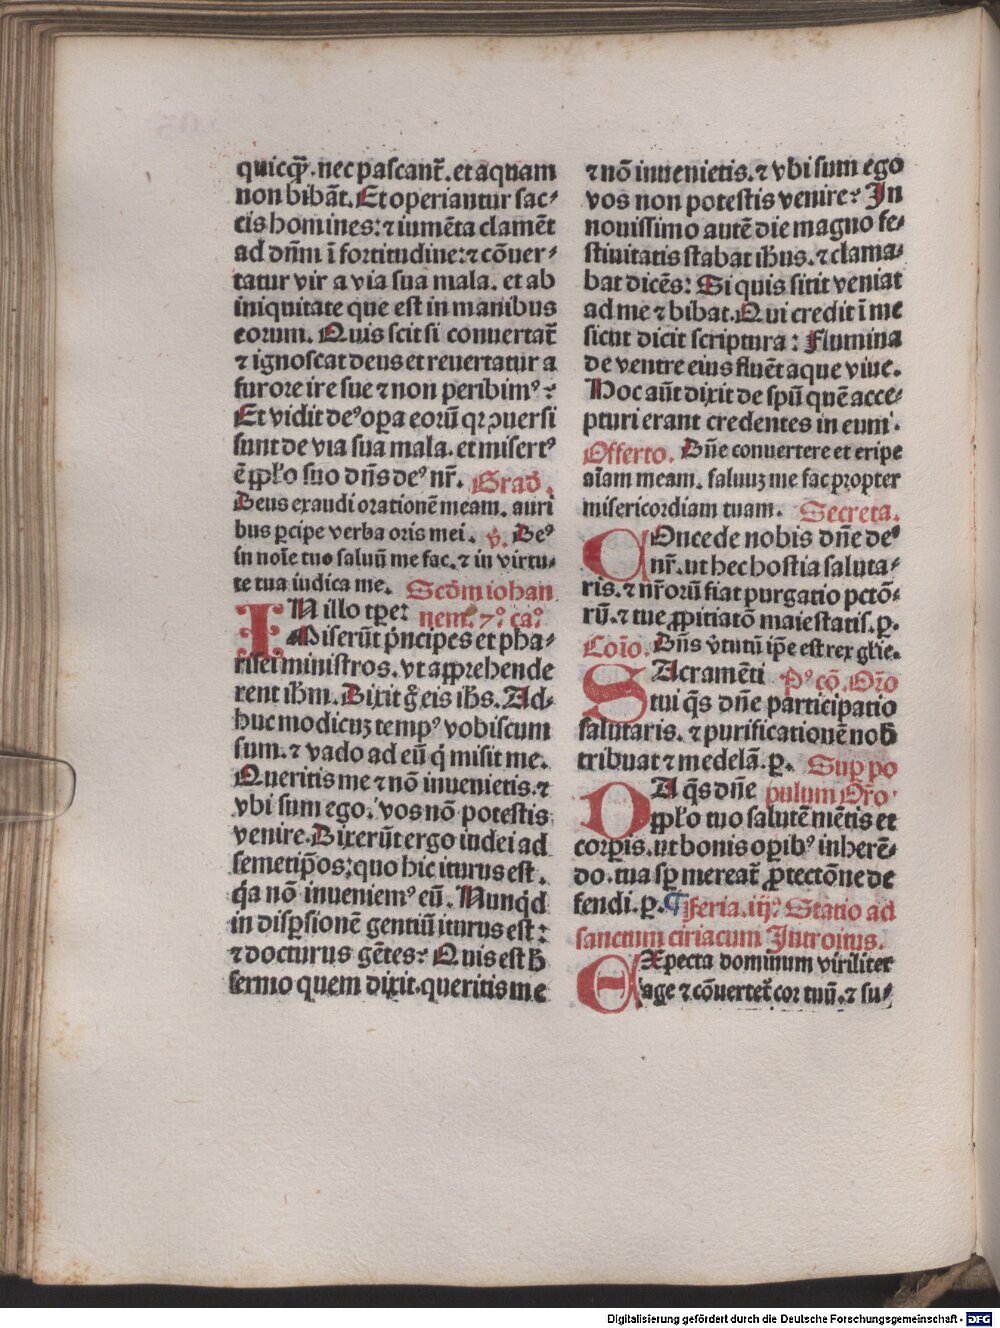 quicqȝ̄. nec pascant᷑. et aquam
non bibāt. Et operiantur sac⸗
cis homines: ⁊ iumēta clamēt
ad dn̄m ī fortitudine: ⁊ cōuer⸗
tatur vir a via sua mala. et ab
iniquitate que est in manibus
eorum. Quis scit si conuertat᷑
⁊ ignoscat deus et reuertatur a
furore ire sue ⁊ non peribimꝰ?
Et vidit deꝰ oꝑa eorū qꝛ ꝯuersi
sunt de via sua mala. et misertꝰ
ē ꝓpl̄o suo dn̄s deꝰ nr̄. Grad̄.
Deus exaudi orationē meam. auri
bus ꝑcipe verba oris mei. v̄. Deꝰ
in noīe tuo saluū me fac. ⁊ in virtu⸗
te tua iudica me. Scd̄m iohan
IN illo tꝑe: nem. 7ͦ. caͦ.
Miserūt p̄ncipes et pha⸗
risei ministros. vt apprehende
rent ih̄m. Dixit g̊ eis ih̄s. Ad⸗
huc modicuꝫ tempꝰ vobiscum
sum. ⁊ vado ad eū q̇ misit me.
Queritis me ⁊ nō inuenietis. ⁊
vbi sum ego. vos nō potestis
venire. Dixerūt ergo iudei ad
semetip̄os: quo hic iturus est.
q̇a nō inueniemꝰ eū. Nunq̇d
in disꝑsionē gentiū iturus est:
⁊ docturus gētes? Quis est h̄
sermo quem dixit. queritis me
⁊ nō inuenietis. ⁊ vbi sum ego
vos non potestis venire? In
nouissimo autē die magno fe⸗
stiuitatis stabat ih̄us. ⁊ clama⸗
bat dicēs: Si quis sitit veniat
ad me ⁊ bibat. Qui credit ī me
sicut dicit scriptura: Flumina
de ventre eius fluēt aque viue.
Hoc aūt dixit de spū quē acce⸗
pturi erant credentes in eum.
Offerto. Dn̄e conuertere et eripe
aīam meam. saluuꝫ me fac propter
misericordiam tuam. Secreta.
COncede nobis dn̄e deꝰ
nr̄. ut hec hostia saluta⸗
ris. ⁊ nr̄orū fiat purgatio pctō⸗
rū. ⁊ tue ꝓpitiatō maiestatis. ꝑ.
Coīo. Dn̄s v̄tutū ip̄e est rex gl̄ie.
SAcramēti Pꝰ cō. Or̄o
tui q̄s dn̄e participatio
salutaris. ⁊ purificationē nob̄
tribuat ⁊ medelā. ꝑ. Suꝑ po
DA q̄s dn̄e pulum Or̄o
ꝓpl̄o tuo salutē mētis et
corꝑis. ut bonis oꝑibꝰ inherē⸗
do. tua sꝑ mereat᷑ ꝓtectōne de
fendi. ꝑ. ¶ Feria. iij. Statio ad
sanctum ciriacum Introitus.
EXpecta dominum viriliter
age ⁊ cōuertet᷑ cor tuū. ⁊ su⸗
Digitalisierung gefördert durch die Deutsche Forschungsgemeinschaft - DFG